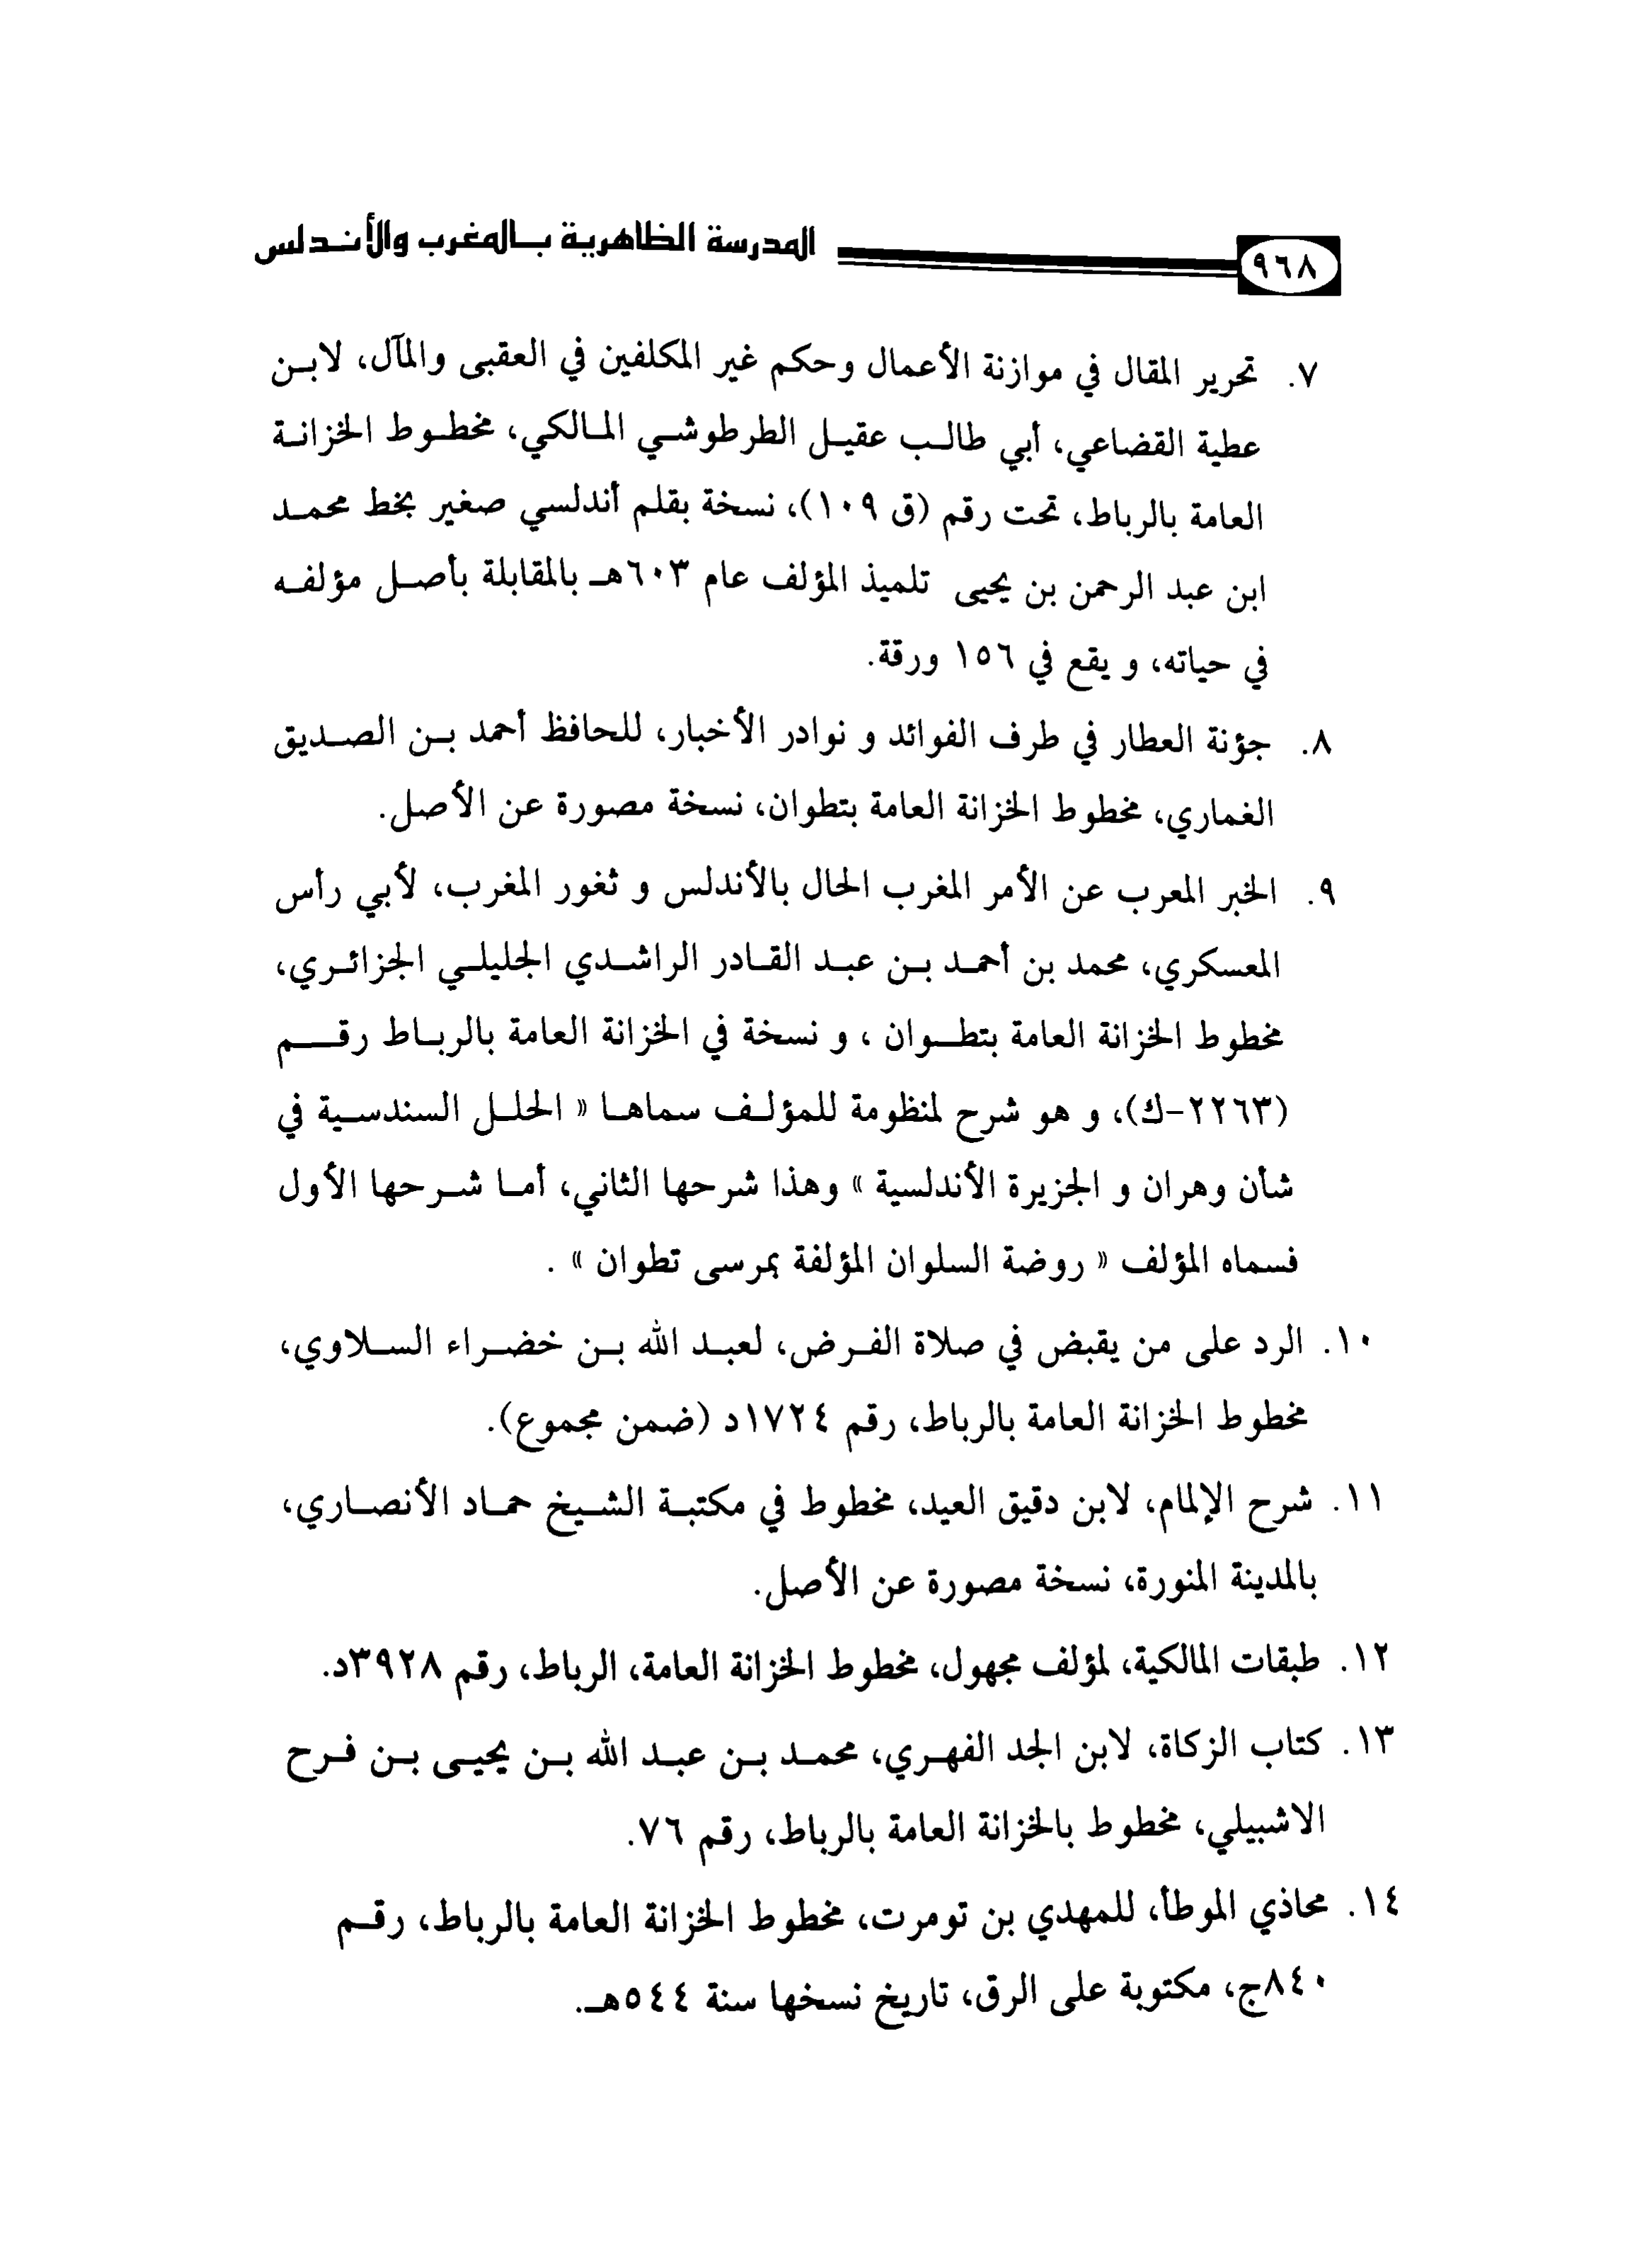 ٩٦٨ المدرسة الظاهرية بالمغرب والأندلس
٧. تحرير المقال في موازنة الأعمال وحكم غير المكلفين في العقبى والمآل، لابن
عطية القضاعي، أبي طالب عقيل الطرطوشي المالكي، مخطوط الخزانة
العامة بالرباط، تحت رقم (ق ١٠٩)، نسخة بقلم أندلسي صغير بخط محمد
ابن عبد الرحمن بن يحيى تلميذ المؤلف عام ٦٠٣هـ بالمقابلة بأصل مؤلفه
في حياته، و يقع في ١٥٦ ورقة.
٨. جؤنة العطار في طرف الفوائد و نوادر الأخبار، للحافظ أحمد بن الصديق
الغماري، مخطوط الخزانة العامة بتطوان، نسخة مصورة عن الأصل.
٩. الخبر المعرب عن الأمر المغرب الحال بالأندلس و ثغور المغرب، لأبي رأس
المعسكري، محمد بن أحمد بن عبد القادر الراشدي الجليلي الجزائري،
مخطوط الخزانة العامة بتطوان ، و نسخة في الخزانة العامة بالرباط رقم
(٢٢٦٣-ك)، و هو شرح لمنظومة للمؤلف سماها « الحلل السندسية في
شأن وهران و الجزيرة الأندلسية » وهذا شرحها الثاني، أما شرحها الأول
فسماه المؤلف « روضة السلوان المؤلفة بمرسى تطوان » .
١٠. الرد على من يقبض في صلاة الفرض، لعبد الله بن خضراء السلاوي،
مخطوط الخزانة العامة بالرباط، رقم ١٧٢٤د (ضمن مجموع).
١١. شرح الإلمام، لابن دقيق العيد، مخطوط في مكتبة الشيخ حماد الأنصاري،
بالمدينة المنورة، نسخة مصورة عن الأصل.
١٢. طبقات المالكية، لمؤلف مجهول، مخطوط الخزانة العامة، الرباط، رقم ٣٩٢٨د.
١٣. كتاب الزكاة، لابن الجد الفهري، محمد بن عبد الله بن يحيى بن فرح
الاشبيلي، مخطوط بالخزانة العامة بالرباط، رقم ٧٦.
١٤. محاذي الموطأ، للمهدي بن تومرت، مخطوط الخزانة العامة بالرباط، رقم
٨٤٠ج، مكتوبة على الرق، تاريخ نسخها سنة ٥٤٤هـ.